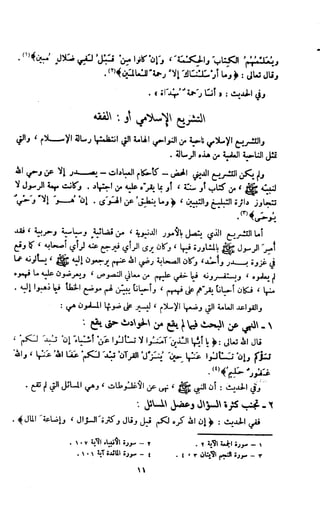 وَيُعَلِّمُهُمُ الْكِتَابَ وَالْحِكْمَةَ، وَإِنْ كَانُوا مِنْ قَبْلُ لَفِي ضَلَالٍ مُبِينٍ﴾(١).
وقال تعالى : ﴿ وَمَا أَرْسَلْنَاكَ إِلَّا رَحْمَةً لِلْعَالَمِينَ ﴾(٢).
وفي الحديث : « أنا رحمة مهداة » .
التشريع الإسلامي أو : الفقه
والتشريع الإسلامي ناحية من النواحي الهامة التي انتظمتها رسالة الإسلام ، والتي
تمثل الناحية العملية من هذه الرسالة .
ولم يكن التشريع الديني المحض - كأحكام العبادات - يصدر إلا عن وحي الله
لنبيه ﷺ ، من كتاب أو سنة ، أو بما يقره عليه من اجتهاد . وكانت مهمة الرسول لا
تتجاوز دائرة التبليغ والتبيين ، ﴿ وما ينطق عن الهوى . إن هو إلا وحي
يوحى ﴾(٣).
أما التشريع الذي يتصل بالأمور الدنيوية ، من قضائية وسياسية وحربية ، فقد
أمر الرسول ﷺ بالمشاورة فيها ، وكان يرى الرأي فيرجع عنه لرأي أصحابه ، كما وقع
في غزوة بدر وأحد، وكان الصحابة رضي الله عنهم يرجعون إليه ﷺ ، يسألونه عما
لم يعلموه ، ويستفسرونه فيما خفي عليهم من معاني النصوص ، ويعرضون عليه ما فهموه
منها ، فكان أحيانا يقرهم على فهمهم ، وأحيانا يبين لهم موضع الخطأ فيما ذهبوا إليه .
والقواعد العامة التي وضعها الإسلام ، ليسير على ضوئها المسلمون هي :
١ - النهي عن البحث فيما لم يقع من الحوادث حتى يقع :
قال الله تعالى : ﴿ يَا أَيُّهَا الَّذِينَ آمَنُوا لَا تَسْأَلُوا عَنْ أَشْيَاءَ إِنْ تُبْدَ لَكُمْ ،
تَسُؤْكُمْ وَإِنْ تَسْأَلُوا عَنْهَا حِينَ يُنَزَّلُ الْقُرْآنُ تُبْدَ لَكُمْ عَفَا اللهُ عَنْهَا ، وَاللهُ
غَفُورٌ حَلِيمٌ ﴾(٤).
وفي الحديث : أن النبي ﷺ ، نهى عن الأغلوطات ، وهي المسائل التي لم تقع .
٢ - تجنب كثرة السؤال وعضل المسائل :
ففي الحديث : ﴿ إن الله كره لكم قيل وقال وكثرة السؤال ، وإضاعة المال ﴾ .
١ - سورة الجمعة الآية ٢ .
٢ - سورة الأنبياء الآية ١٠٧ .
٣ - سورة النجم الآيتان ٣ ، ٤ .
٤ - سورة المائدة آية ١٠١ .
١١